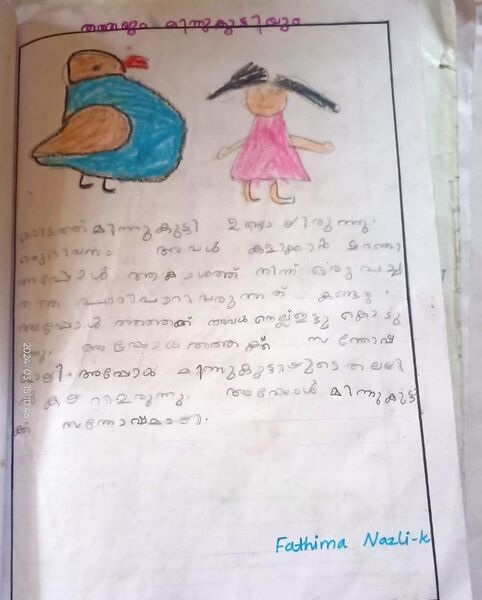 തത്തയും മിന്നുകുട്ടിയും
ഒരിടത്ത് മിന്നുകുട്ടി ഉണ്ടായിരുന്നു.
ഒരുദിവസം അവൾ കളിക്കാൻ ഇറങ്ങി
അപ്പോൾ ആകാശത്ത് നിന്ന് ഒരു പച്ച
തത്ത പാറിപാറിവരുന്നത് കണ്ടു.
അപ്പോൾ തത്തക്ക് അവൾ നെല്ല്ഇട്ടു കൊടു
അപ്പോൾ തത്തക്ക് സന്തോഷ
അപ്പോൾ മിന്നുകുട്ടിയുടെ തലയി
കയറിഇരുന്നു. അപ്പോൾ മിന്നുകുട്ടി
ക്ക് സന്തോഷമായി.
Fathima Nazli-k